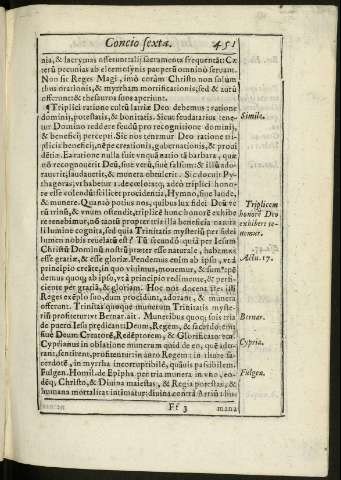 Concio sexta. 451
nia, & lacrymas offerunt: alij sacramenta frequentāt: Cæ
terū pecunias ab eleemosynis pauperū omninò seruant.
Non sic Reges Magi, imò corām Christo non solùm
thus orationis, & myrrham mortificationis; sed & aurū
offerunt: & thesauros suos aperiunt.
¶ Triplici ratione cultū latriæ Deo debemus: ratione
dominij, potestatis, & bonitatis. Sicut feudatarius tene-
tur Domino reddere feudū pro recognitione dominij,
& beneficij percepti. Sic nos tenemur Deo ratione tri-
plicis beneficij, nēpe creationis, gubernationis, & proui
dētiæ. Ea ratione nulla fuit vnquā natio tā barbara, quæ
nō recognouerit Deū, siue verū, siue falsum: & illū ado-
rauerit, laudauerit, & munera obtulerit. Sic docuit Py-
thagoras; vt habetur
re esse colendū: scilicet prouidentia, Hymno, siue laude,
& munere. Quantò potius nos, quibus lux fidei Deū ve
rū trinū, & vnum ostendit, triplicē hunc honorē exhibe
re tenebimur, nō tantū propter tria illa beneficia natura
li lumine cognita, sed quia Trinitatis mysteriū per fidei
lumen nobis reuelatū est? Tū secundò quia per Iesum
Christū Dominū nostrū præter esse naturale, habemus
esse gratiæ, & esse gloriæ. Pendemus enim ab ipso, vt à
principio creāte, in quo viuimus, mouemur, & sumus:
demus quoq; ab ipso, vt à principio redimente, & perfi-
ciente per gratiā, & gloriam. Hoc nos docent
Reges exēplo suo, dum procidunt, adorant, & munera
offerunt. Trinitas quoque munerum Trinitatis myste-
riū profitetur: vt Bernar. ait. Muneribus quoq; suis tria
de puero Iesu prædicant: Deum, Regem, & sacerdotem:
siue Deum Creatorē, Redēptorem, & Glorificatorem.
Cyprianus in oblatione munerum quid de eo, quē ado-
rant, sentirent, profitentur: in auro Regem: in thure sa-
cerdotē, in myrrha incorruptibilē, quāuis passibilem.
Fulgen. Homil. de Epipha. per tria munera in vno, eo-
dēq; Christo, & Diuina maiestas, & Regia potestas, &
humana mortalitas intimatur: diuina contrà Arrium: hūs
Ff 3 mana
Simile.
Triplicem
honorē Deo
exhibere te-
nemur.
Actu. 17.
Bernar.
Cypria.
Fulgen.